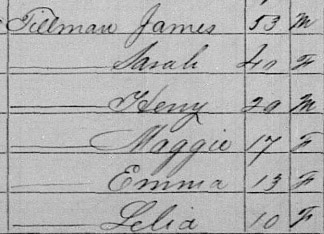 Tillman James 53 M
—— Sarah 40 F
—— Heny 20 M
—— Maggie 17 F
—— Emma 13 F
—— Lelia 10 F